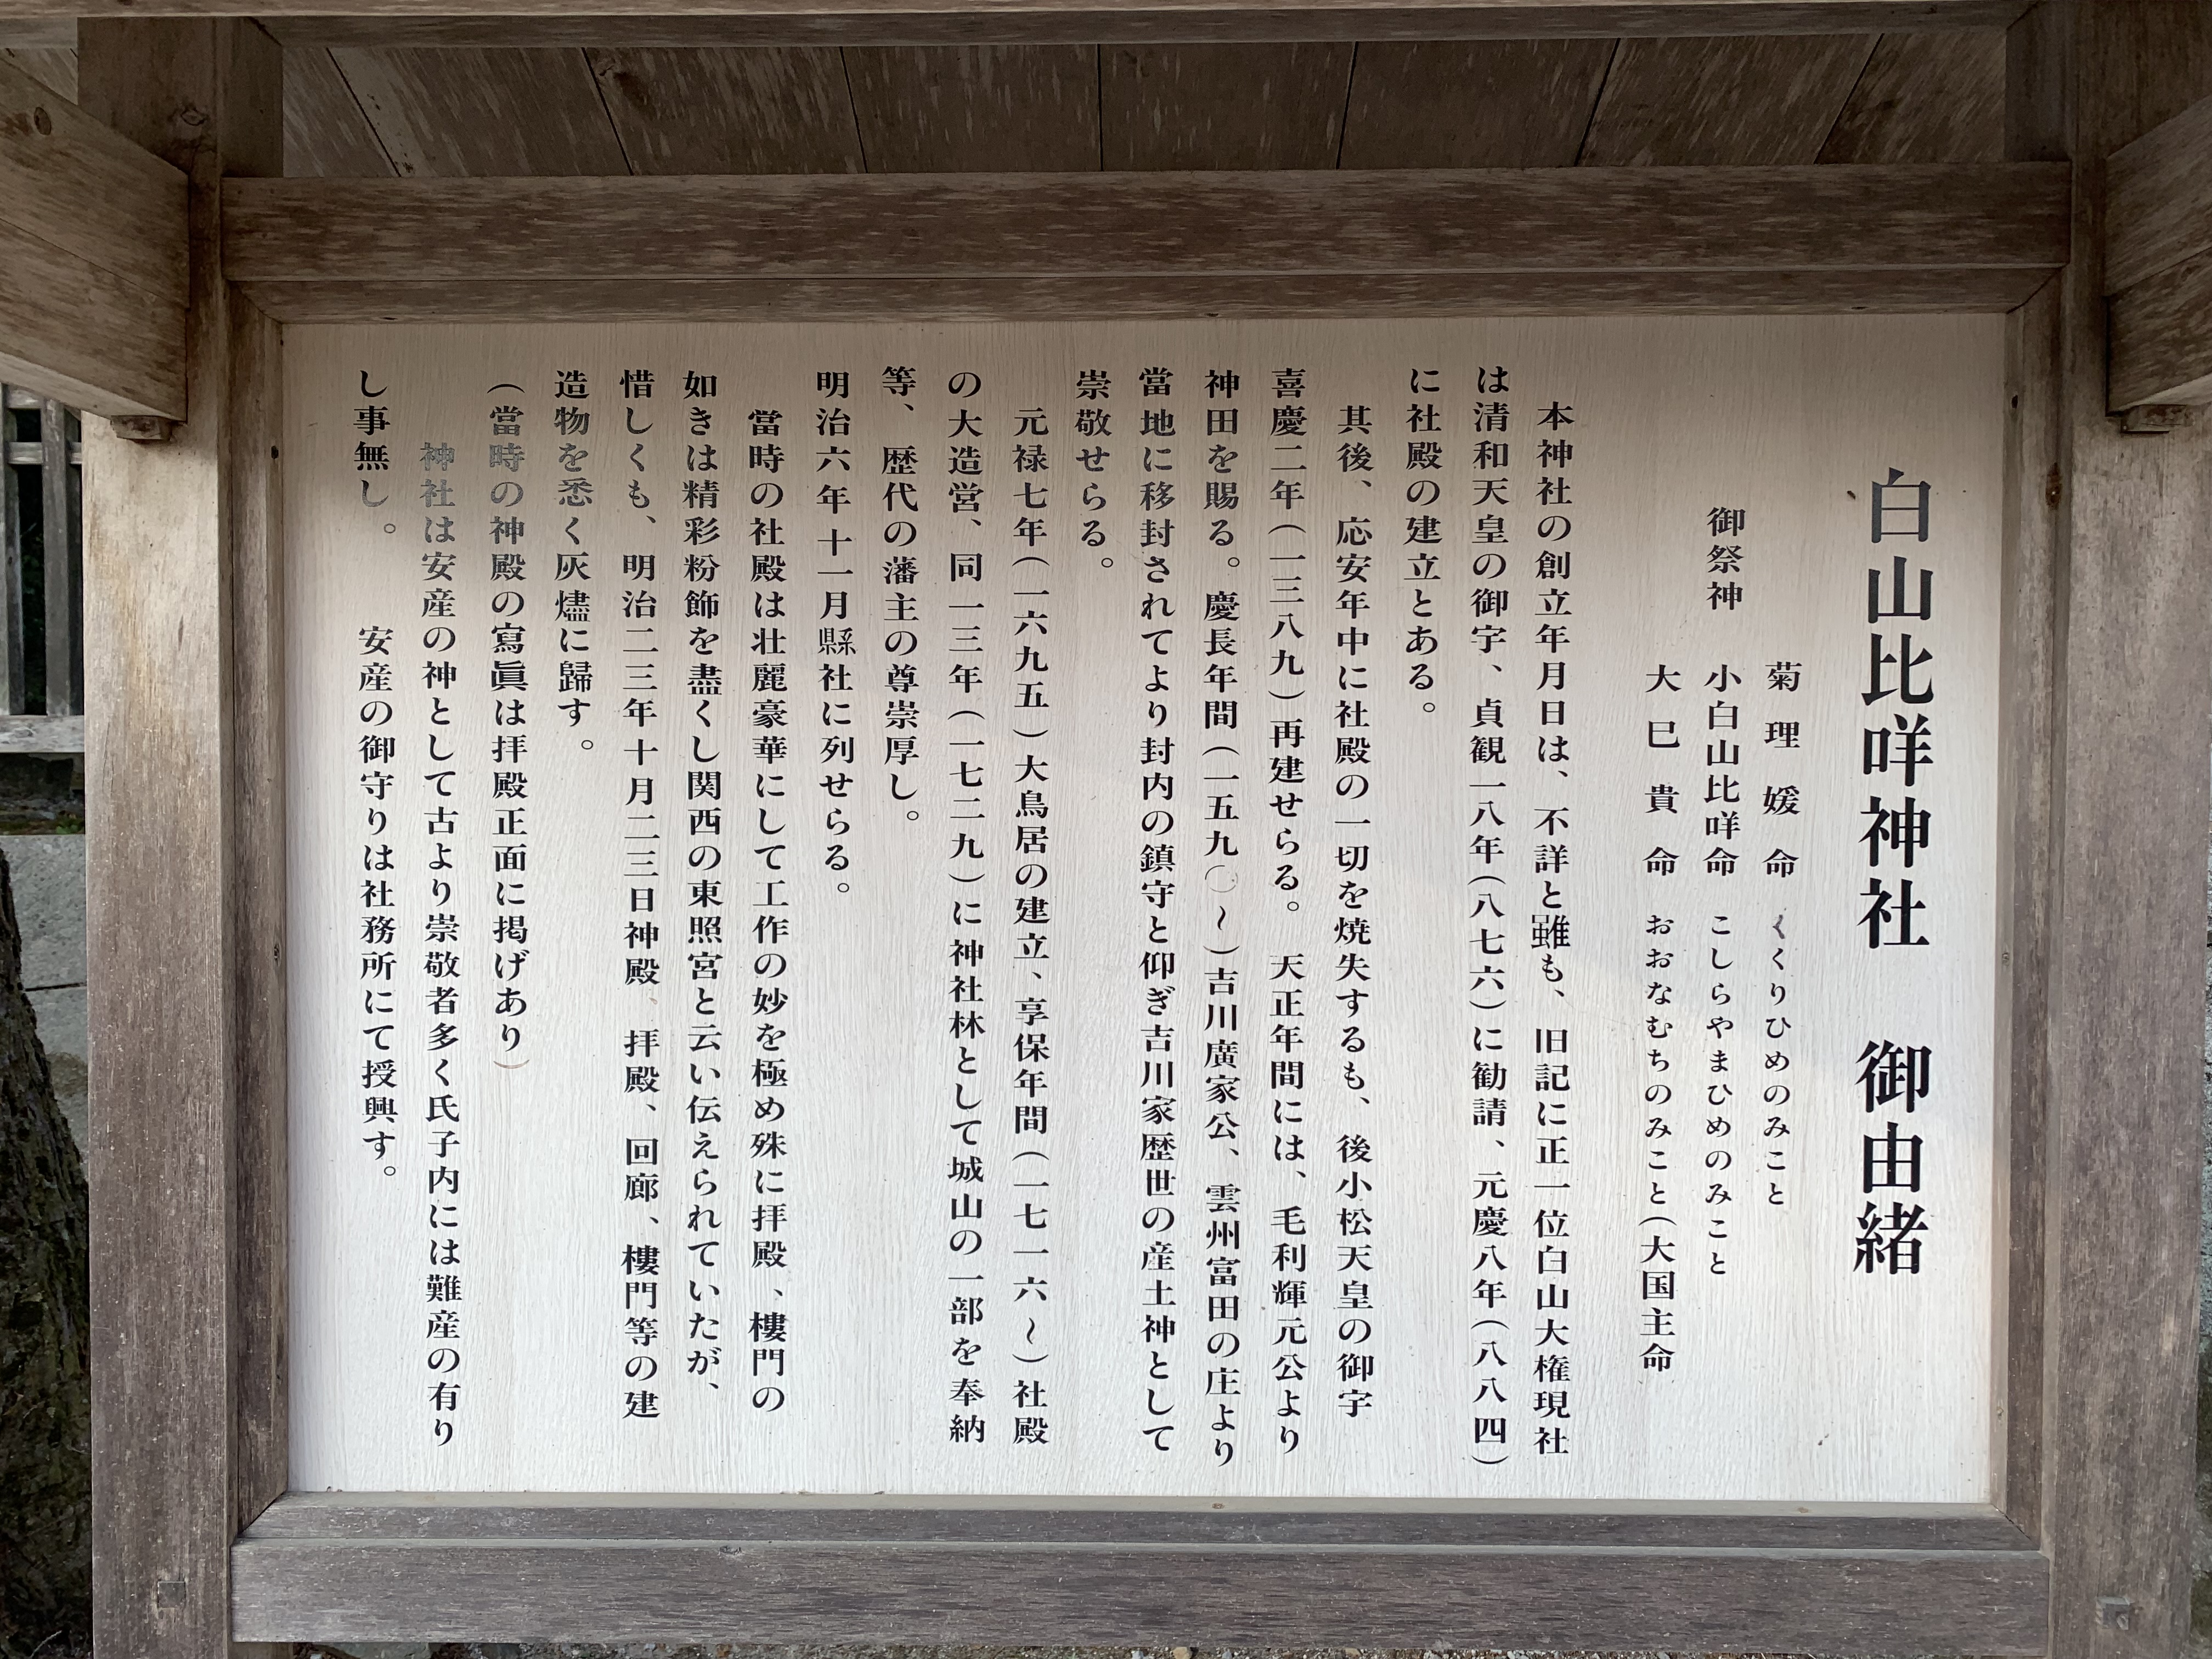 白山比咩神社　御由緒
菊理媛命　くくりひめのみこと
御祭神　小白山比咩命　こしらやまひめのみこと
大巳貴命　おおなむちのみこと（大国主命
本神社の創立年月日は、不詳と雖も、旧記に正一位白山大権現社
は清和天皇の御宇、貞観一八年（八七六）に勧請、元慶八年（八八四）
に社殿の建立とある。
其後、応安年中に社殿の一切を焼失するも、後小松天皇の御宇
喜慶二年（一三八九）再建せらる。天正年間には、毛利輝元公より
神田を賜る。慶長年間（一五九〇～）吉川廣家公、雲州富田の庄より
當地に移封されてより封内の鎮守と仰ぎ吉川家歴世の産土神として
崇敬せらる。
元禄七年（一六九五）大鳥居の建立、享保年間（一七一六～）社殿
の大造営、同一三年（一七二九）に神社林として城山の一部を奉納
等、歴代の藩主の尊崇厚し。
明治六年十一月縣社に列せらる。
當時の社殿は壮麗豪華にして工作の妙を極め殊に拝殿、樓門の
如きは精彩粉飾を盡くし関西の東照宮と云い伝えられていたが、
惜しくも、明治二三年十月二三日神殿、拝殿、回廊、樓門等の建
造物を悉く灰燼に歸す。
（當時の神殿の寫眞は拝殿正面に掲げあり）
神社は安産の神として古より崇敬者多く氏子内には難産の有り
し事無し。　安産の御守りは社務所にて授興す。